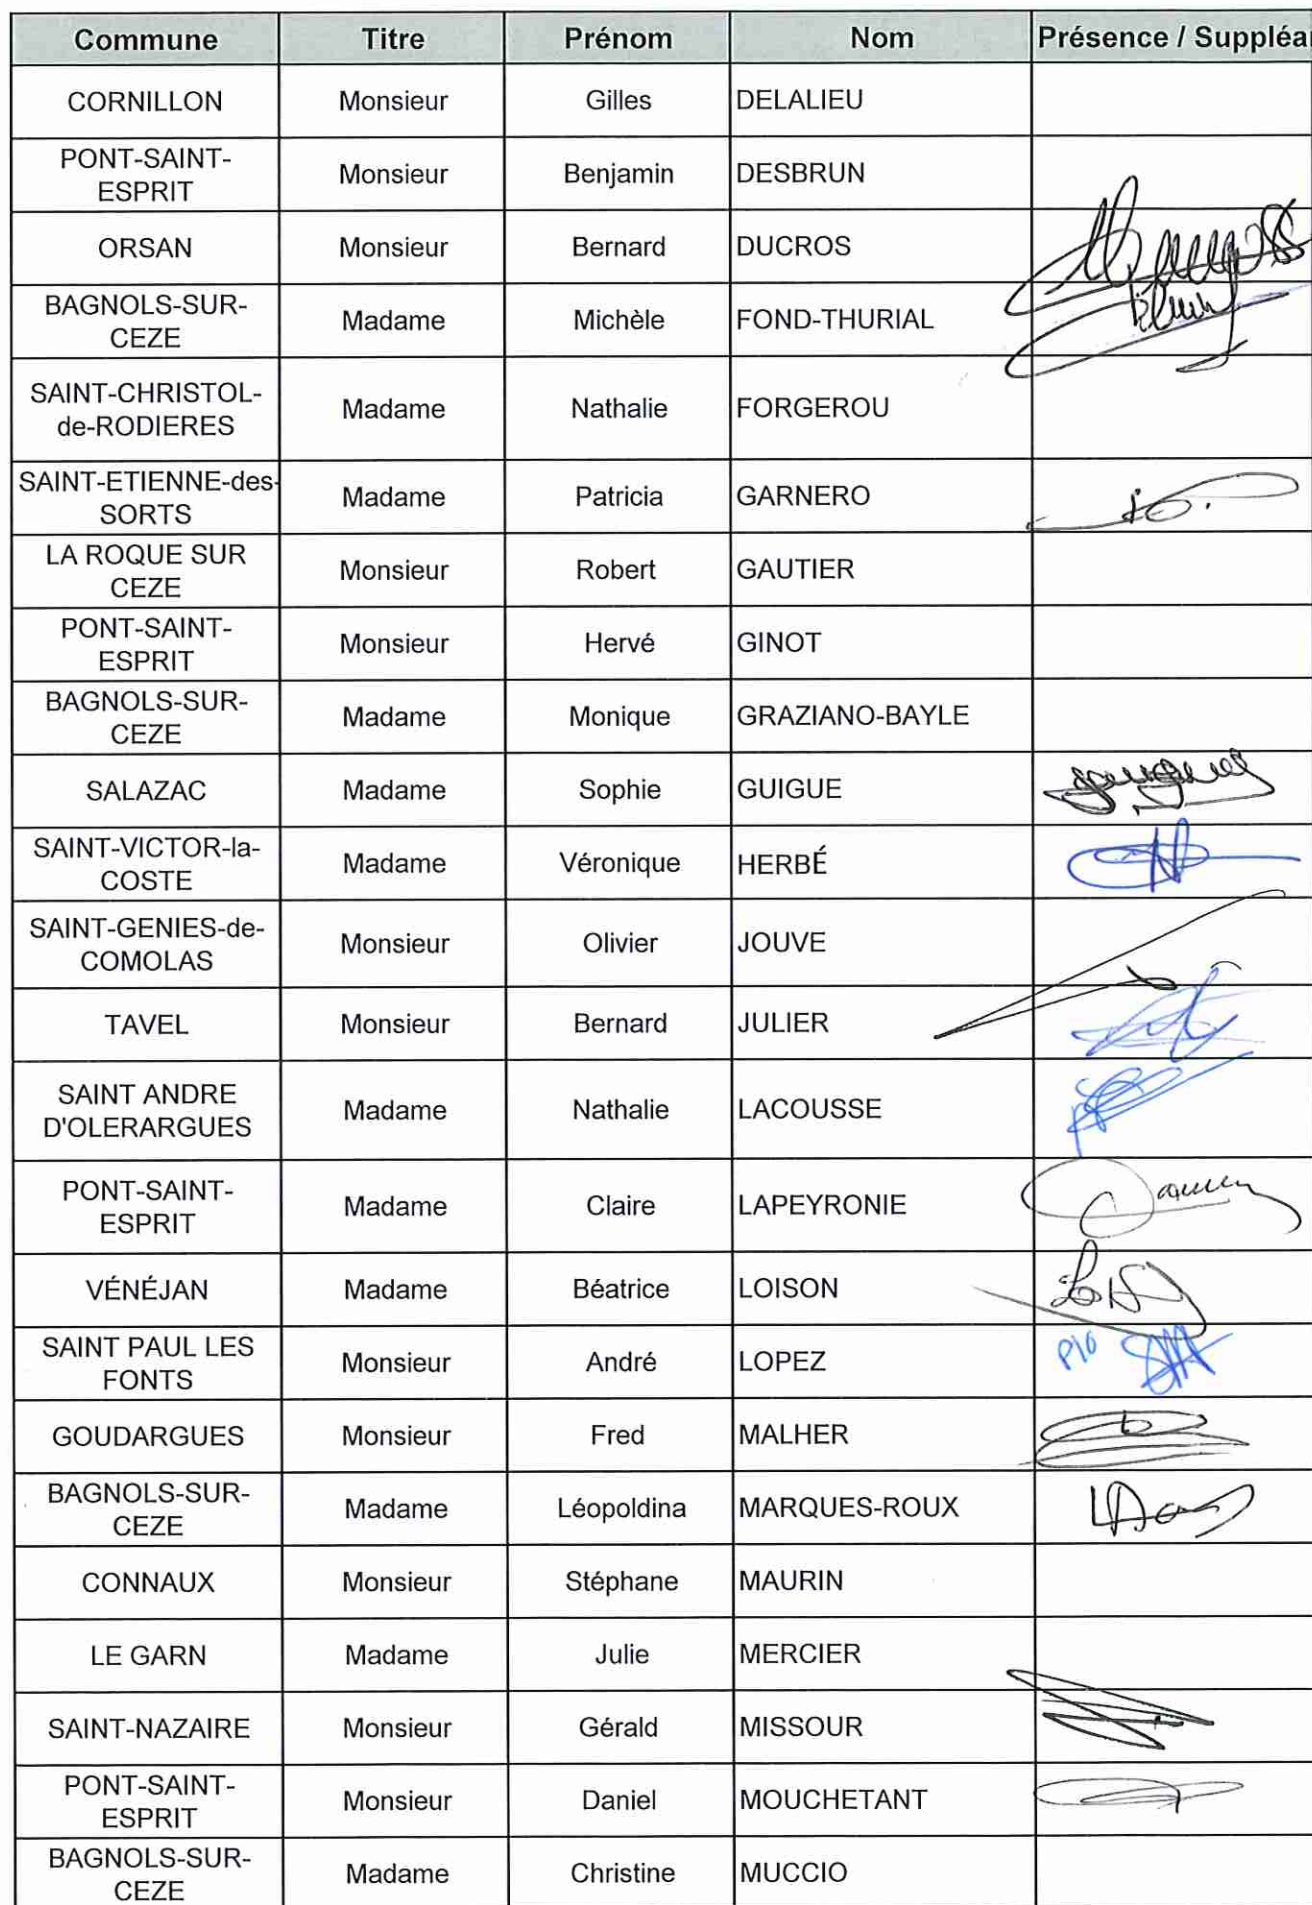 Commune Titre Prénom Nom Présence / Suppléan
CORNILLON Monsieur Gilles DELALIEU
PONT-SAINT-
ESPRIT Monsieur Benjamin DESBRUN
ORSAN Monsieur Bernard DUCROS
BAGNOLS-SUR-
CEZE Madame Michèle FOND-THURIAL
SAINT-CHRISTOL-
de-RODIERES Madame Nathalie FORGEROU
SAINT-ETIENNE-des-
SORTS Madame Patricia GARNERO
LA ROQUE SUR
CEZE Monsieur Robert GAUTIER
PONT-SAINT-
ESPRIT Monsieur Hervé GINOT
BAGNOLS-SUR-
CEZE Madame Monique GRAZIANO-BAYLE
SALAZAC Madame Sophie GUIGUE
SAINT-VICTOR-la-
COSTE Madame Véronique HERBÉ
SAINT-GENIES-de-
COMOLAS Monsieur Olivier JOUVE
TAVEL Monsieur Bernard JULIER
SAINT ANDRE
D'OLERARGUES Madame Nathalie LACOUSSE
PONT-SAINT-
ESPRIT Madame Claire LAPEYRONIE
VÉNÉJAN Madame Béatrice LOISON
SAINT PAUL LES
FONTS Monsieur André LOPEZ P/O
GOUDARGUES Monsieur Fred MALHER
BAGNOLS-SUR-
CEZE Madame Léopoldina MARQUES-ROUX
CONNAUX Monsieur Stéphane MAURIN
LE GARN Madame Julie MERCIER
SAINT-NAZAIRE Monsieur Gérald MISSOUR
PONT-SAINT-
ESPRIT Monsieur Daniel MOUCHETANT
BAGNOLS-SUR-
CEZE Madame Christine MUCCIO